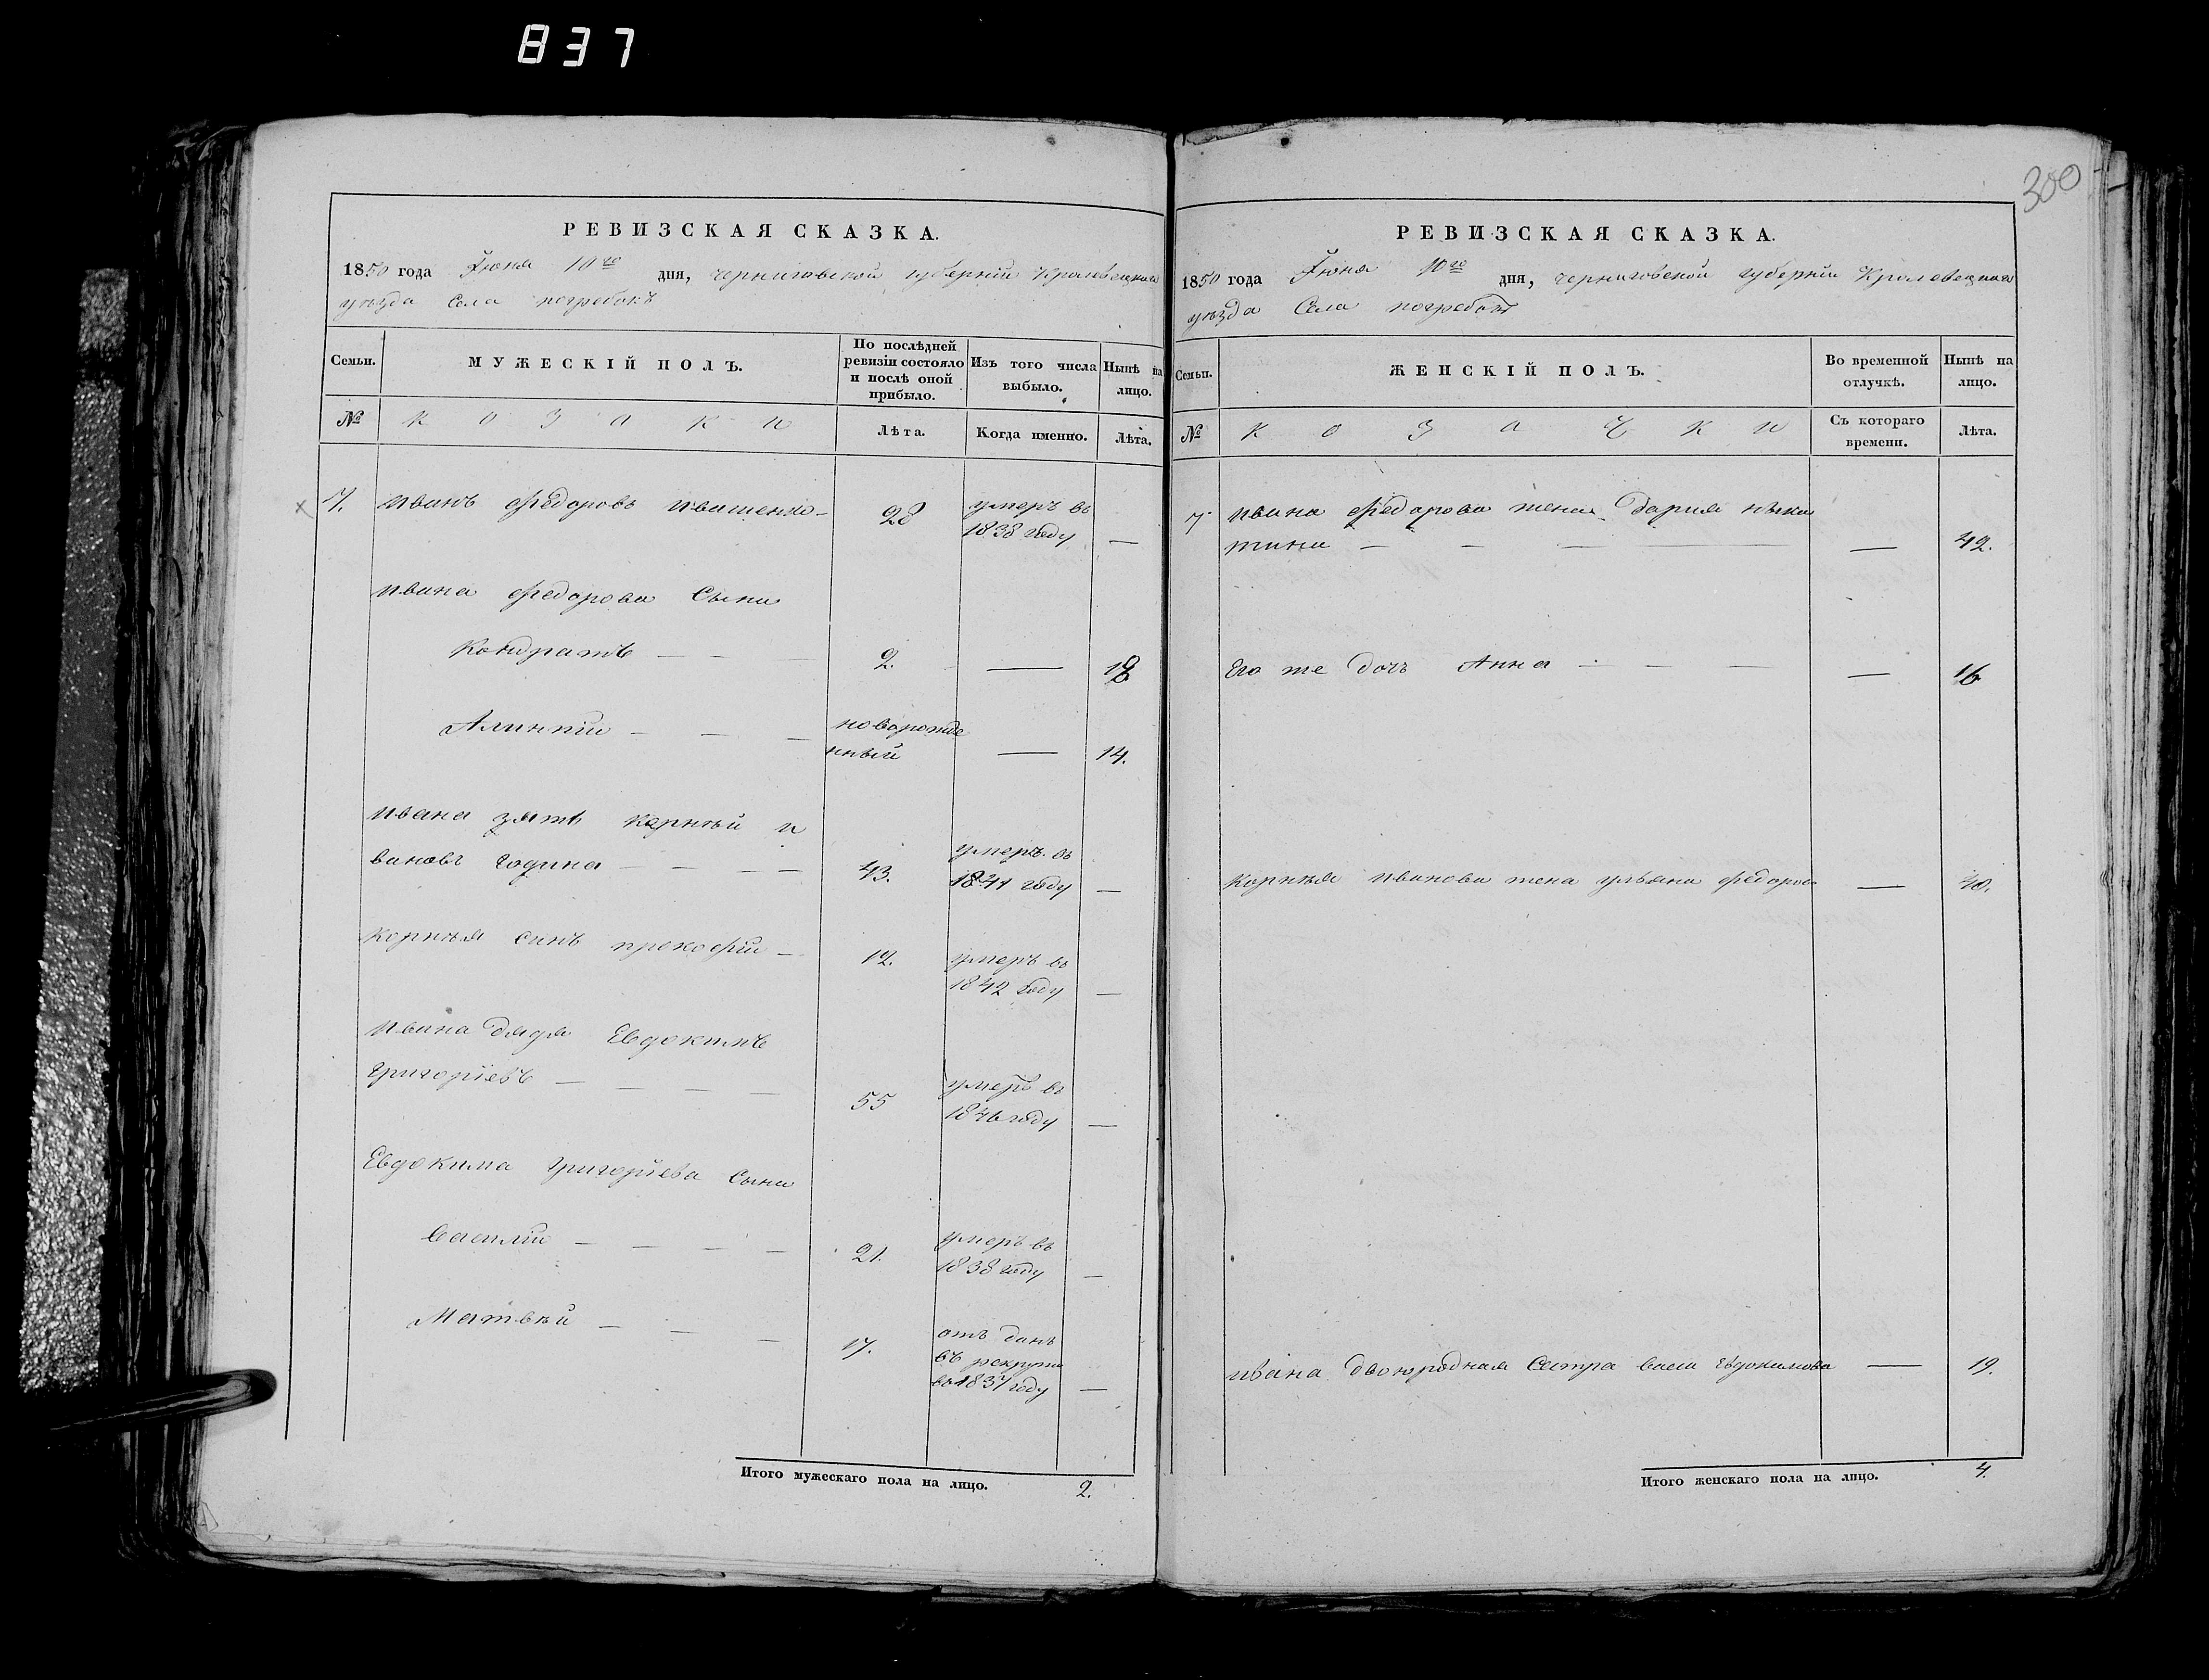 837
300
РЕВИЗСКАЯ СКАЗКА.
1850 года Іюня 10го дня, черниговской губерніи Кролевецкаго
уѣзда Села погребокъ
Семьи.
МУЖЕСКІЙ ПОЛЪ.
По послѣдней
ревизіи состояло
и послѣ оной
прибыло.
Изъ того числа
выбыло.
Нынѣ на
лицо.
№
козаки
Лѣта.
Когда именно.
Лѣта.
7. иванъ федоровъ ивашенко 28 умеръ въ
1838 году —
ивана федорова Сыни
Кондратъ — — 2. — 18
Алинпій — — — новорожде
нный — 14.
ивана зять корнѣй и
вановъ година — — — — 43. умеръ въ
1841 году —
корнѣя синъ прокофій — 12. умеръ въ
1842 году —
ивана дядя Евдокимъ
григоріевъ — — — — 55 умеръ въ
1846 году —
Евдокима григоріева Сыни
василій — — — — 21. умеръ въ
1838 году —
Матвѣй — — — 17. отъ данъ
въ рекруты
во 1837 году —
Итого мужескаго пола на лицо. 2.
РЕВИЗСКАЯ СКАЗКА.
1850 года Іюня 10го дня, черниговской губерніи Кролевецкаго
уѣзда Села погребокъ
Семьи.
ЖЕНСКІЙ ПОЛЪ.
Во временной
отлучкѣ.
Нынѣ на
лицо.
№
козачки
Съ котораго
времени.
Лѣта.
7 ивана федорова жена Дария
— — — — — 42.
Его же дочъ Анна — — — — 16
корнѣя иванова жена ульяна федоров — 40.
ивана двоюродная Сестра васа Евдокимова — 19.
Итого женскаго пола на лицо. 4.